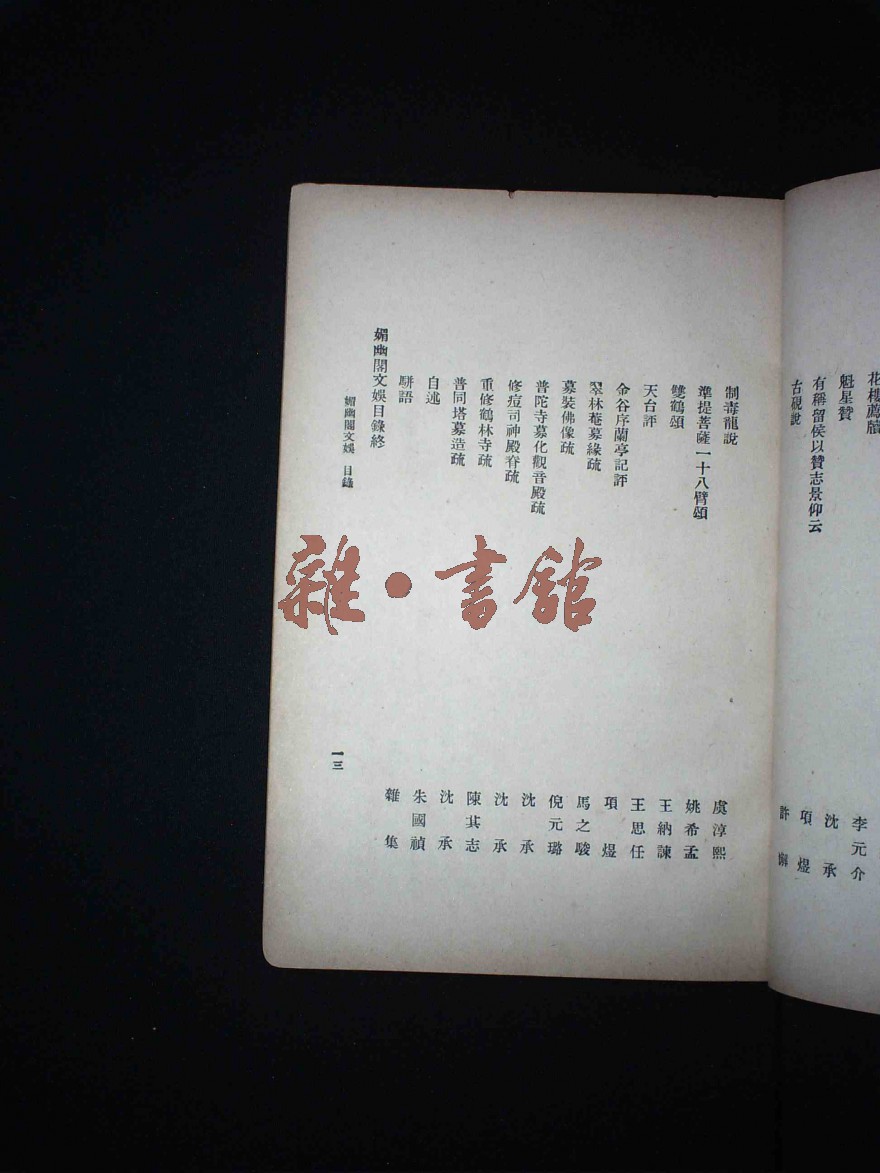 花樓薦牘
李元介
魁星贊
沈承
有稱留侯以贊志景仰云
項煜
古硯說
許
制毒龍說
虞淳熙
準提菩薩一十八臂頌
姚希孟
雙鶴頌
王納諫
天台評
王思任
金谷序蘭亭記評
項煜
翠林庵募緣疏
馬之駿
募裝佛像疏
倪元璐
普陀寺募化觀音殿疏
沈承
修痘司神殿脊疏
沈承
重修鶴林寺疏
陳其志
普同塔募造疏
沈承
自述
朱國禎
駢語
雜集
媚幽閣文娛目錄終
媚幽閣文娛 目錄
一三
雜·書館